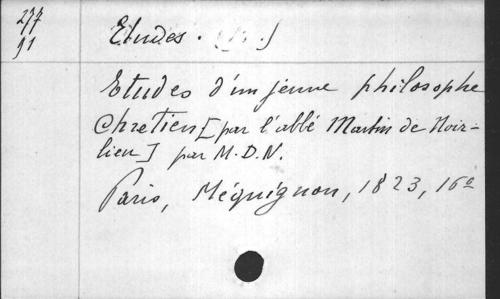 237
91
Etudes.
Etudes d'un jeune philosophe
Chretien [par l'abbé Martin de Noir-
lieu] par M.D.N.
Paris, Méquignon, 1823, 16°